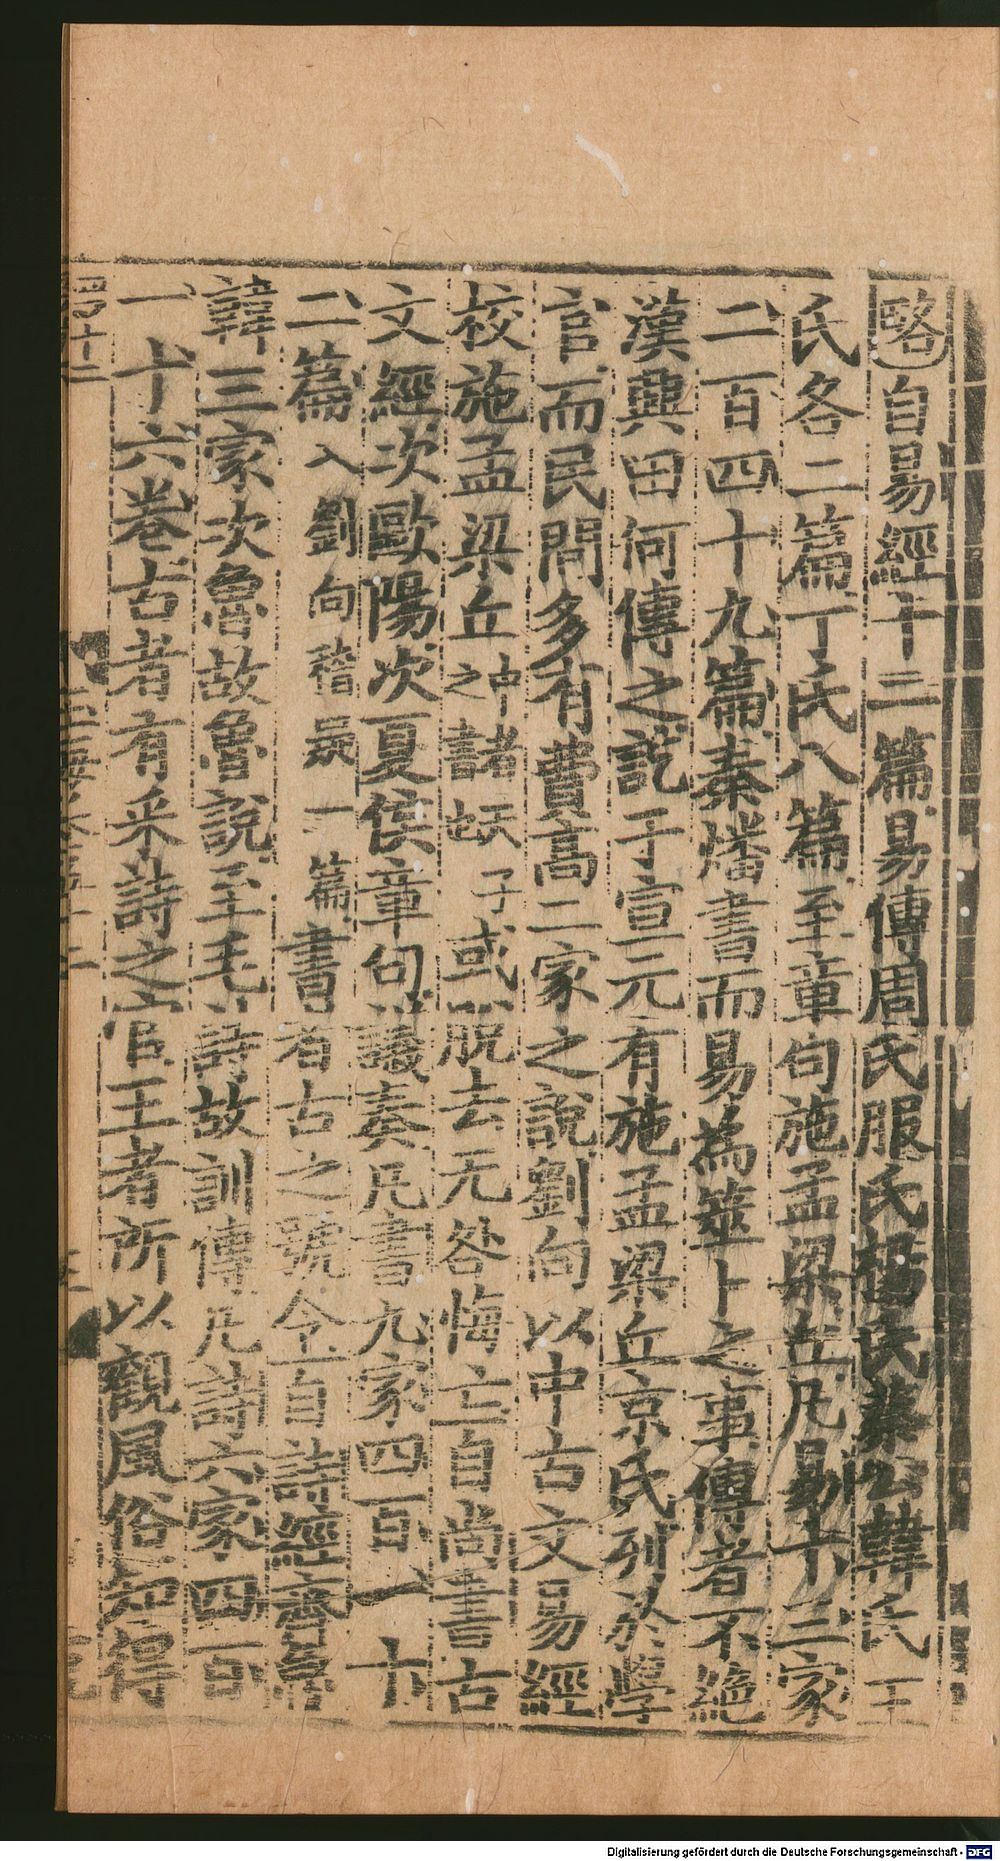 略自易經十二篇易傳周氏服氏楊氏蔡公韓氏王
氏各二篇丁氏八篇至章句施孟梁丘凡易十三家
二百四十九篇秦燔書而易為筮卜之事傳者不絶
漢興田何傳之訖于宣元有施孟梁丘京氏列於學
官而民間多有費高二家之說劉向以中古文易經
校施孟梁丘中之諸書天子或脫去无咎悔亡自尚書古
文經次歐陽次夏侯章句議奏凡書九家四百一十
二篇入劉向稽疑一篇書者古之號令自詩經齊魯
韓三家次魯故魯說至毛詩故訓傳凡詩六家四百
一十六卷古者有采詩之官王者所以觀風俗知得
四十二
Digitalisierung gefördert durch die Deutsche Forschungsgemeinschaft - DFG